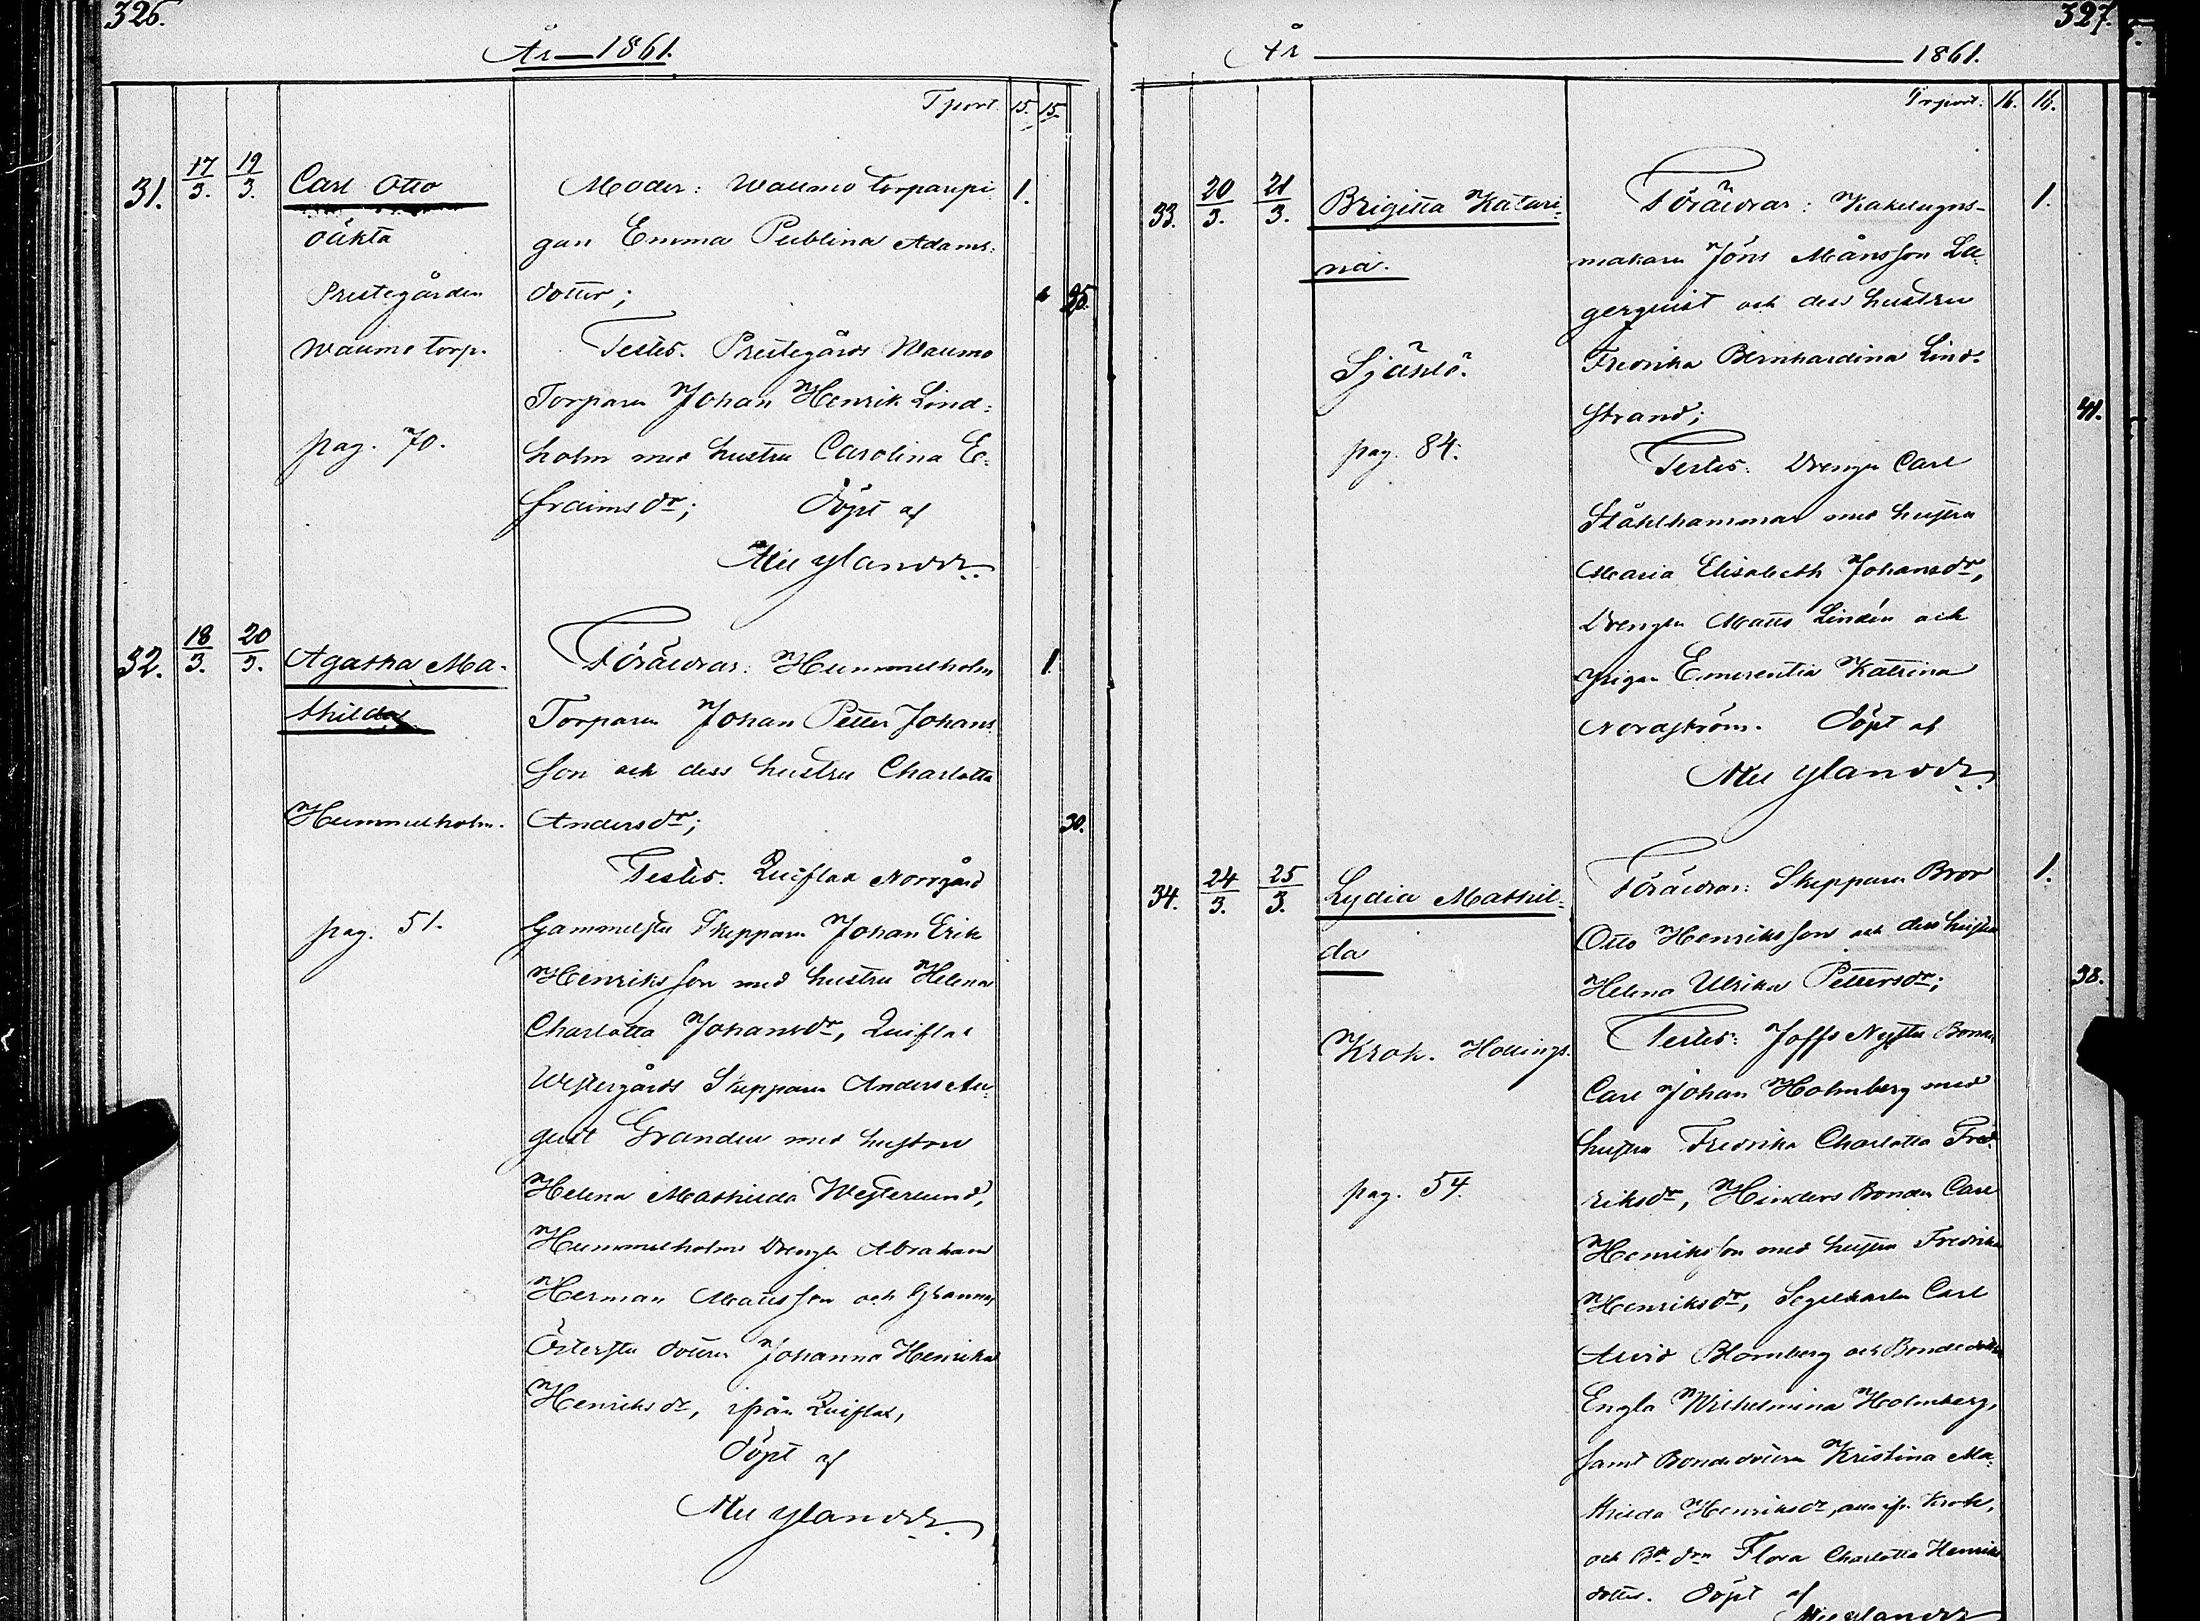 326.
År 1861.
Tport. 15. 15.
31. 17/3. 19/3. Carl Otto
oäkta
Prestegården
Waumo torp.
pag. 70.
Moder: Waumo torparepi 1.
gan Emma Publina Adams:
dotter; 25.
Testes. Prestegårds Waumo
Torparen Johan Henrik Lind:
holm med hustru Carolina E:
fraimsdr; Döpt af
32. 18/3. 20/3. Agatha Ma-
thilda
Hummelholm.
pag. 51.
Föräldrar: Hummelholm 1.
Torparen Johan Petter Johans
son och dess hustru Charlotta
Andersdr; 30.
Testes. Quiflax Norrgård
Gammelste Skepparen Johan Erik
Henriksson med hustru Helena
Charlotta Johansdr, Quiflax
Westergårds Skepparen Anders Au-
gust Grandell med hustru
Helena Mathilda Westerlund,
Hummelholms Drengen Abraham
Herman Mattsson och
Österste dottren Johanna Henrika
Henriksdr, ifrån Quiflax,
Döpt af
327.
År 1861.
Trport. 16. 16.
33. 20/3. 21/3. Brigitta Katari-
na.
Själslö.
pag. 84.
Föräldrar: Kakelugns- 1.
makaren Jöns Månsson La-
gerquist och dess hustru
Fredrika Bernhardina Lind-
strand; 41.
Testes: Drengen Carl
Ståhlhammar med hustru
Maria Elisabeth Johansdr,
Drengen Matts Lindén och
pigan Emerentia Katrina
Nordström. Döpt af
34. 24/3. 25/3. Lydia Mathil-
da
Krok. Hollings.
pag. 54.
Föräldrar: Skepparen Bror 1.
Otto Henriksson och dess hustru
Helena Ulrika Pettersdr; 38.
Testes: Joffs Nyste Bonden
Carl Johan Holmberg med
hustru Fredrika Charlotta Fred-
riksdr, Hinders Bonden Carl
Henriksson med hustru Fredrika
Henriksdr, Segelkarlen Carl
Arvid Blomberg och Bondedottren
Engla Wilhelmina Holmberg,
samt Bondedottren Kristina Ma-
thilda Henriksdr, alla ifr. Krok,
och Flora Charlotta Henriks
dotter. Döpt af